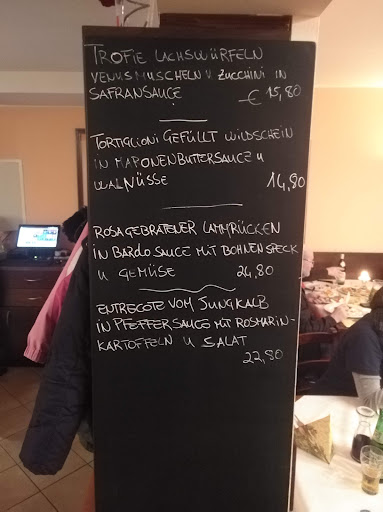 TROFIE LACHSWÜRFELN
VENUSMUSCHELN U ZUCCHINI IN
SAFRANSAUCE € 15,80
TORTIGLIONI GEFÜLLT WILDSCHEIN
IN MARONENBUTTERSAUCE U
WALNÜSSE 14,80
ROSAGEBRATENER LAMMRÜCKEN
IN BAROLO SAUCE MIT BOHNEN SPECK
U GEMÜSE 24,80
ENTRECOTE VOM JUNGKALB
IN PFEFFERSAUCE MIT ROSMARIN-
KARTOFFELN U SALAT
22,80